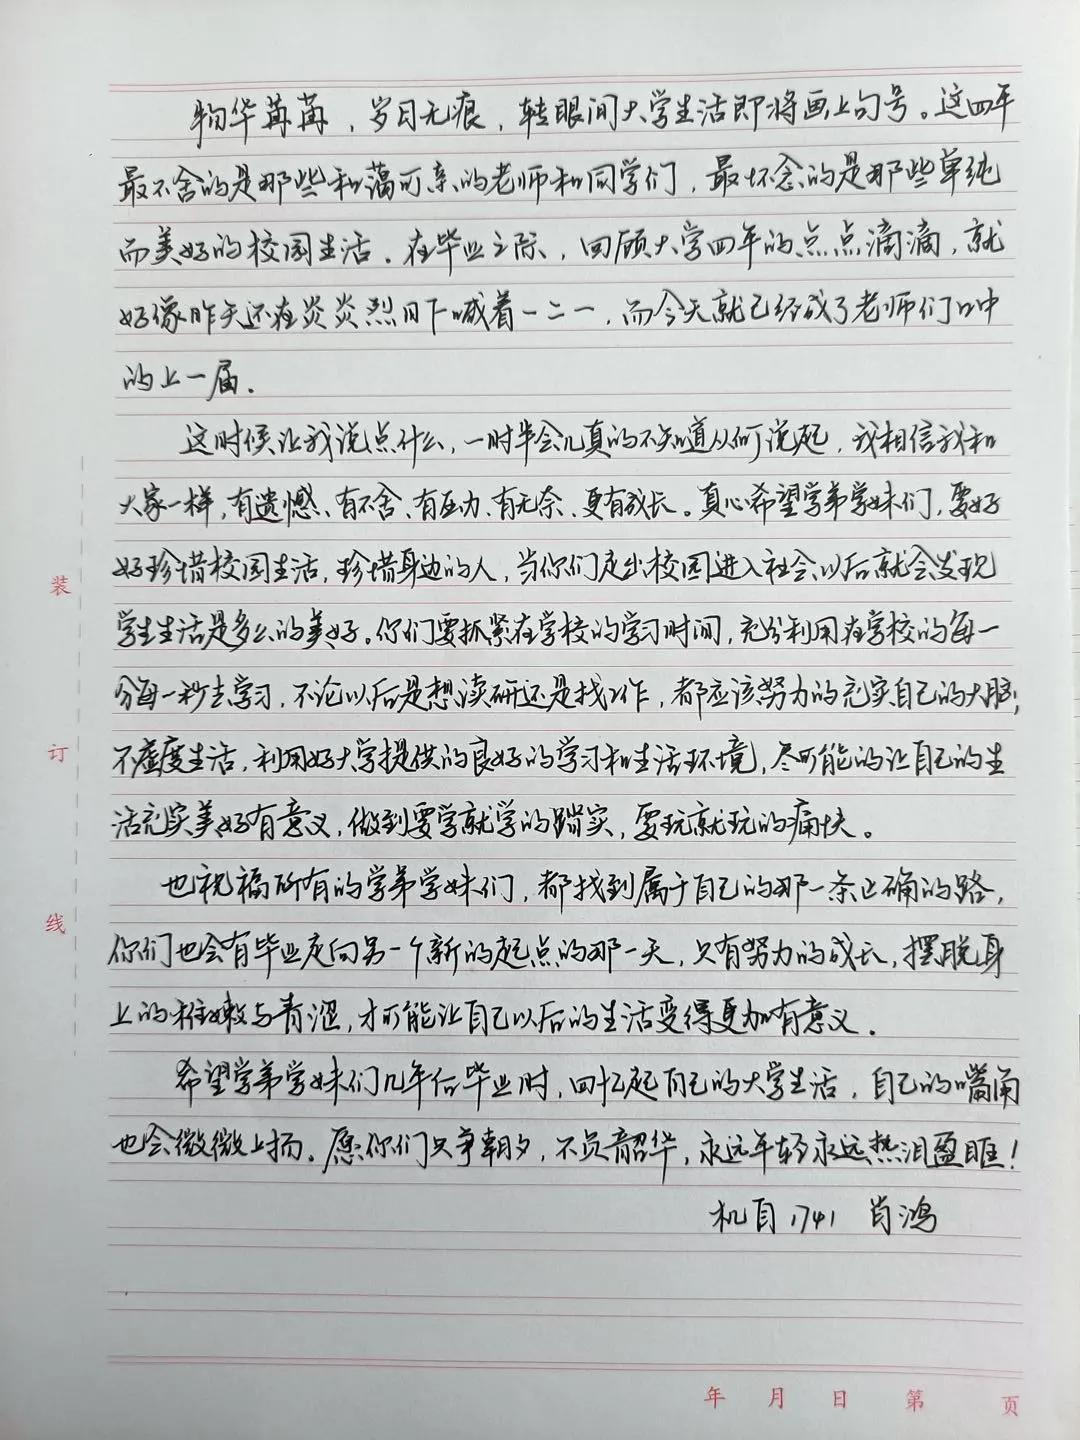 物华苒苒，岁月无痕，转眼间大学生活即将画上句号。这四年
最不舍的是那些和蔼可亲的老师和同学们，最怀念的是那些单纯
而美好的校园生活。在毕业之际，回顾大学四年的点点滴滴，就
好像昨天还在炎炎烈日下喊着一二一，而今天就已经成了老师们口中
的上一届。
这时候让我说点什么，一时半会儿真的不知道从何说起，我相信我和
大家一样，有遗憾、有不舍、有压力、有无奈、更有成长。真心希望学弟学妹们，要好
好珍惜校园生活，珍惜身边的人，当你们走出校园进入社会以后就会发现
学生生活是多么的美好。你们要抓紧在学校的学习时间，充分利用在学校的每一
分每一秒去学习，不论以后是想读研还是找工作，都应该努力的充实自己的大脑；
不虚度生活，利用好大学提供的良好的学习和生活环境，尽可能的让自己的生
活充实美好有意义，做到要学就学的踏实，要玩就玩的痛快。
也祝福所有的学弟学妹们，都找到属于自己的那一条正确的路，
你们也会有毕业走向另一个新的起点的那一天，只有努力的成长，摆脱身
上的稚嫩与青涩，才可能让自己以后的生活变得更加有意义。
希望学弟学妹们几年后毕业时，回忆起自己的大学生活，自己的嘴角
也会微微上扬。愿你们只争朝夕，不负韶华，永远年轻永远热泪盈眶！
机自1741 肖鸿
装
订
线
年 月 日 第 页